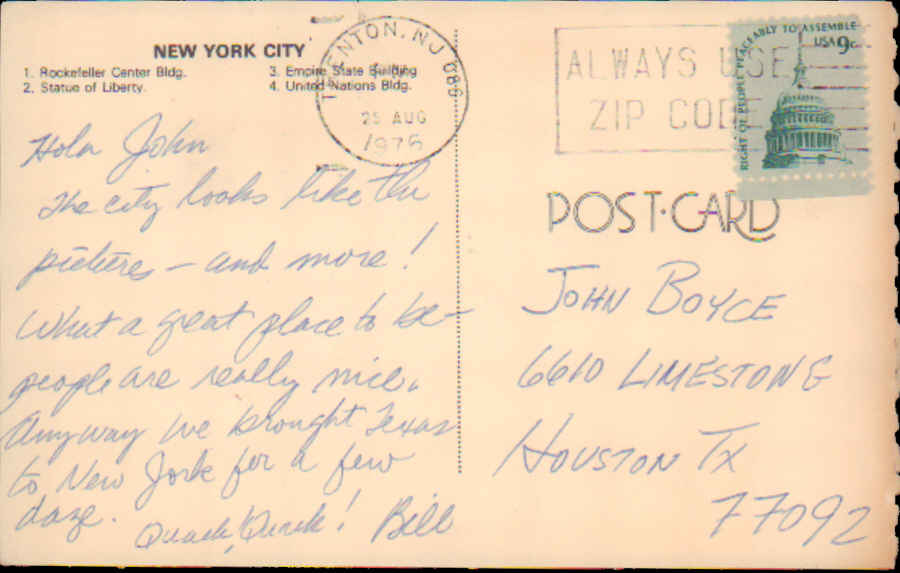 NEW YORK CITY
1. Rockefeller Center Bldg.
2. Statue of Liberty.
3. Empire State Building
4. United Nations Bldg.
TRENTON, NJ 086
25 AUG
1976
ALWAYS USE
ZIP CODE
RIGHT OF PEOPLE PEACEABLY TO ASSEMBLE
USA 9c
POST·CARD
Hola John
The city looks like the
pictures – and more!
What a great place to be –
people are really nice.
Anyway we brought Texas
to New Jork for a few
daze.
Quack, Quack! Bill
JOHN BOYCE
6610 LIMESTONE
HOUSTON TX
77092